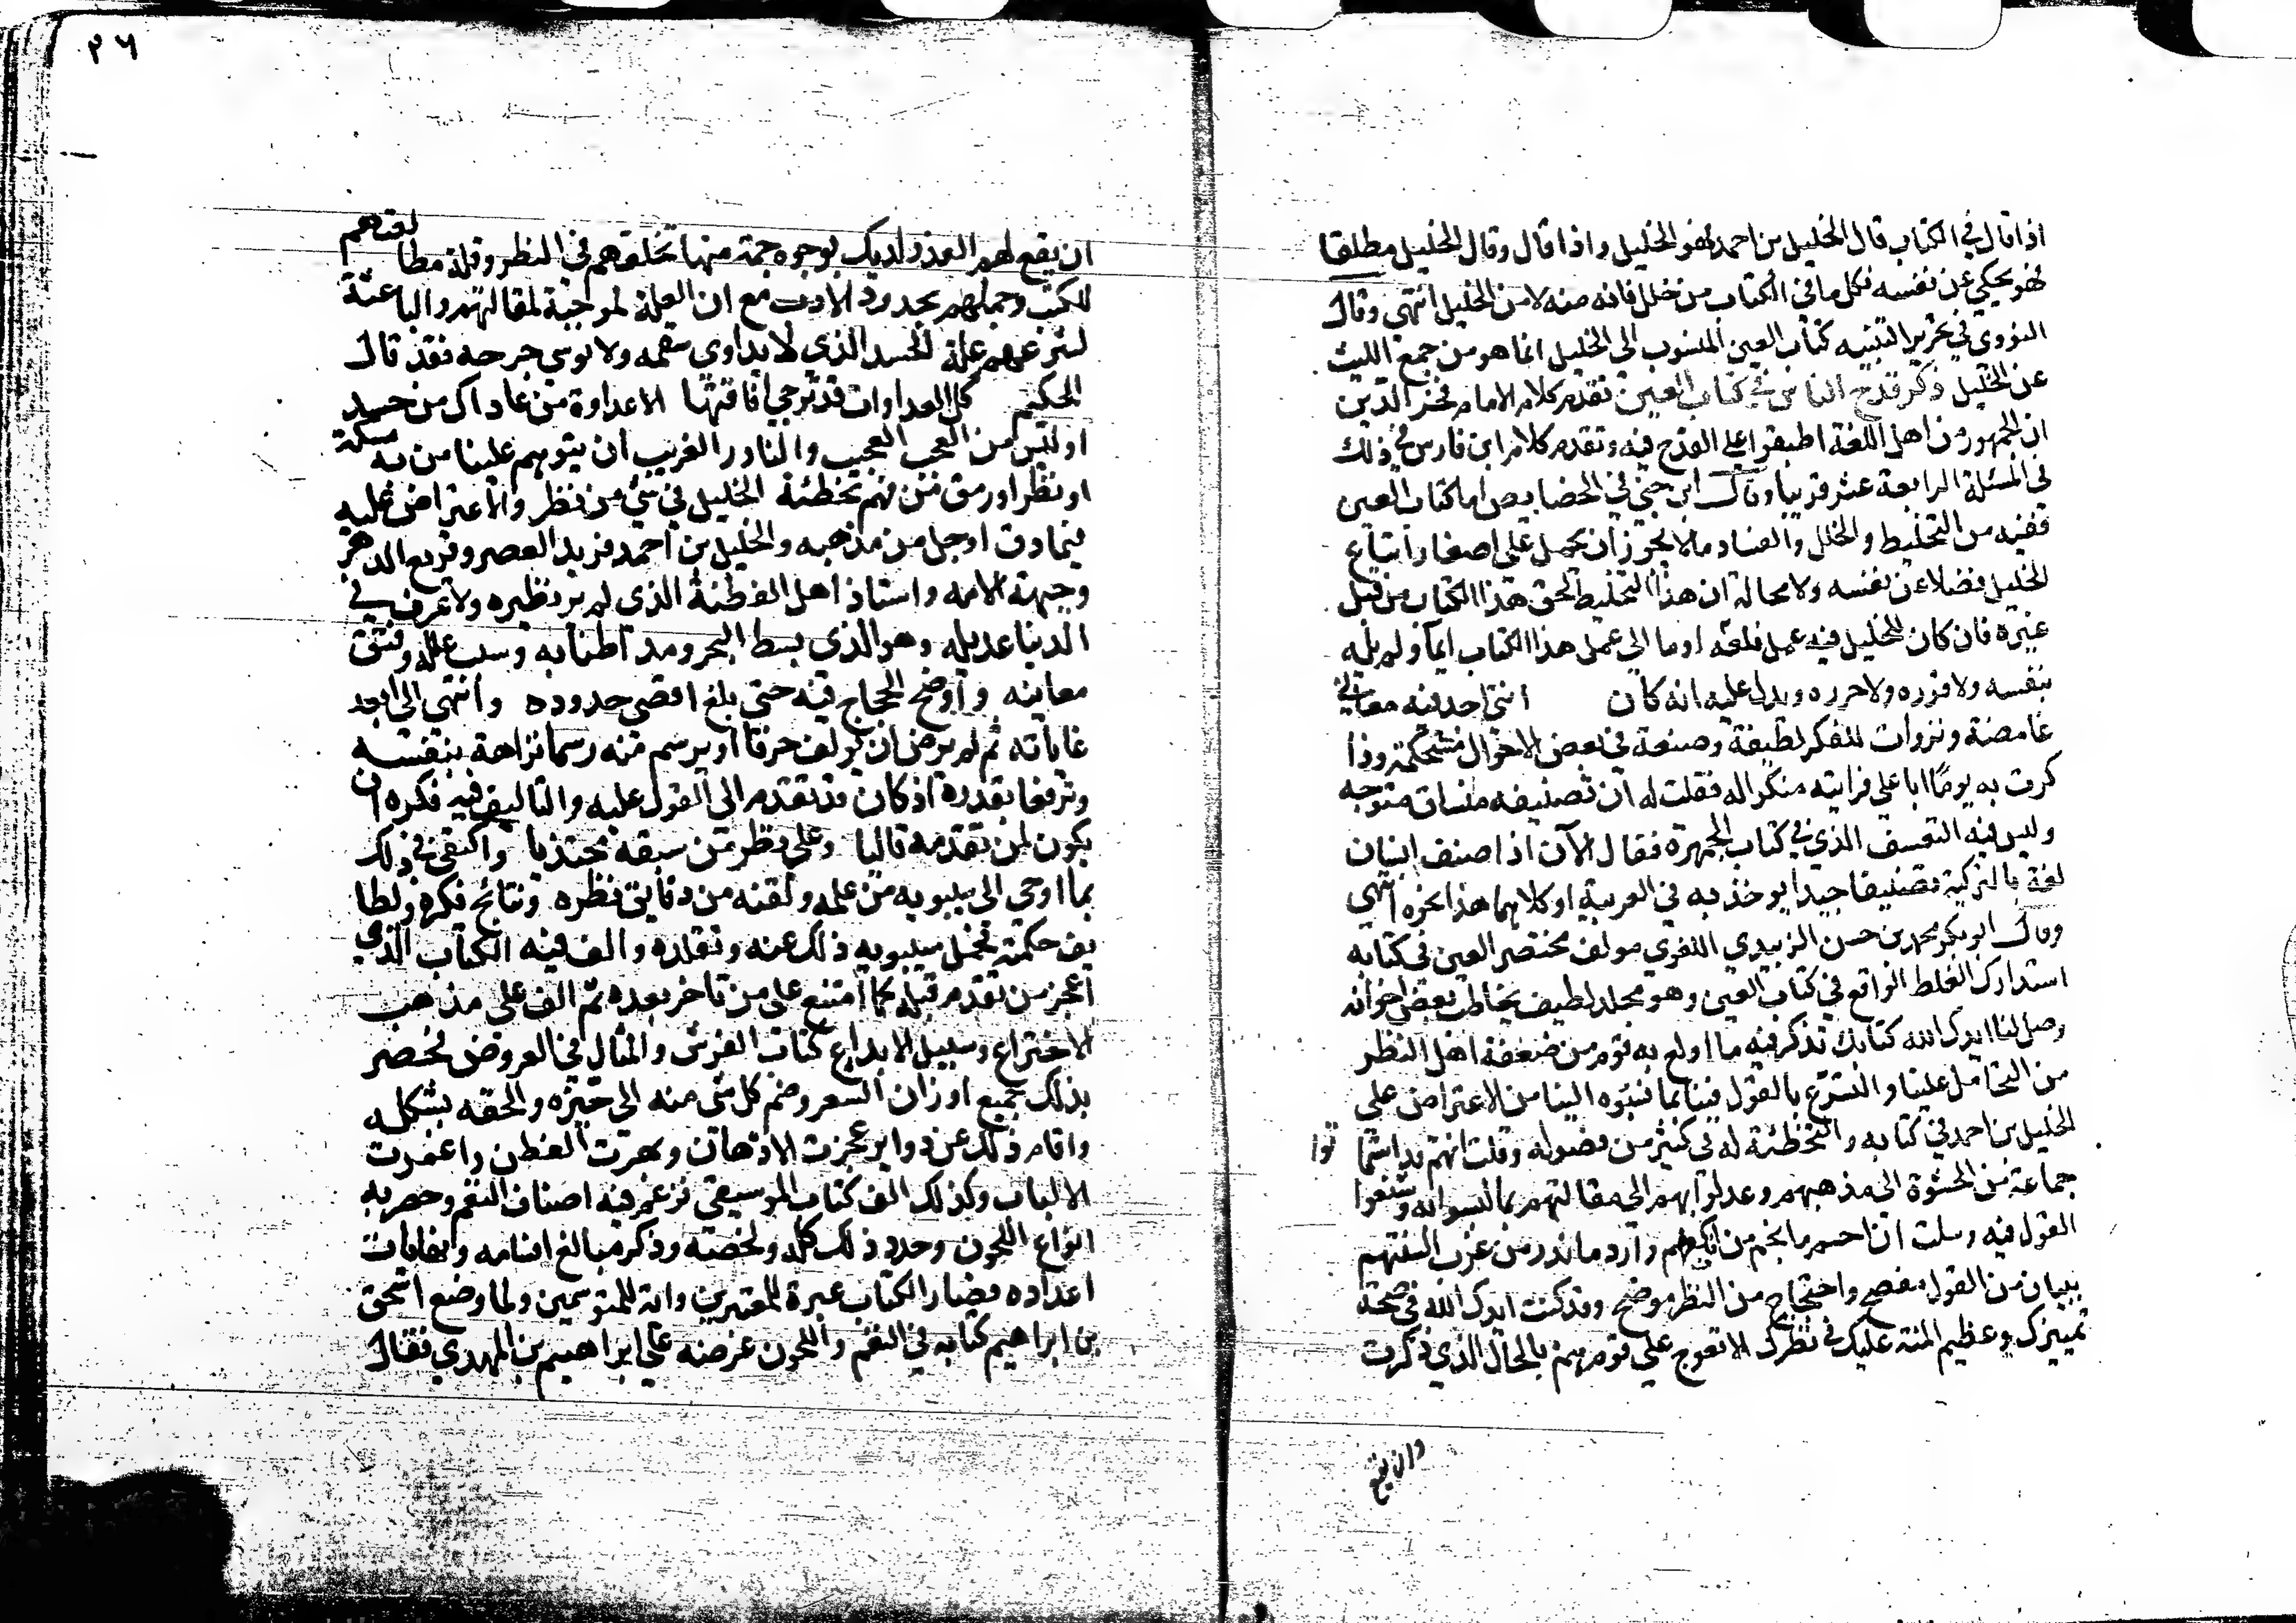 اذا قال في الكتاب قال الخليل بن احمد فهو الخليل واذا قال وقال الخليل مطلقا
فهو يحكي عن نفسه فكل ما في الكتاب من خلل فانه منه لا من الخليل انتهى وقال
النووي في تحرير التنبيه كتاب العين المنسوب الى الخليل انما هو من جمع الليث
عن الخليل ذكر قدح الناس في كتاب العين تقدم كلام الامام فخر الدين
ان الجمهور من اهل اللغة اطبقوا على القدح فيه وتقدم كلام ابن فارس في ذلك
في المسئلة الرابعة عشر قريبا وقال ابن جني في الخصايص اما كتاب العين
ففيه من التخليط والخلل والفساد ما لا يجوز ان يحمل على اصغار اتباع
الخليل فضلا عن نفسه ولا محالة ان هذا التخليط لحق هذا الكتاب من قبل
غيره فان كان للخليل فيه عمل فلعله اوما الى عمل هذا الكتاب ايما ولم يله
بنفسه ولا قرره ولا حرره ويدل عليه انه كان انتى اجد فيه معاني
غامضة ونزوات للفكر لطيفة وصنعة في بعض الاحوال مستحكمة وذا
كرت به يوما ابا علي فرايته منكرا له فقلت له ان تصنيفه منساق متوجه
وليس فيه التعسف الذي في كتاب الجمهرة فقال الآن اذا صنف انسان
لغة بالتركية تصنيفا جيدا يوخذ به في العربية او كلاما هذا نحوه انتهى
وقال ابو بكر محمد بن حسن الزبيدي اللغوي مولف مختصر العين في كتابه
استدراك الغلط الواقع في كتاب العين وهو مجلد لطيف يخاطب بعض اخوانه
وصل لنا ايدك الله كتابك تذكر فيه ما اولع به قوم من ضعفة اهل النظر
من التحامل علينا والتسرع بالقول فينا بما نسبوه الينا من الاعتراض على
الخليل بن احمد في كتابه والتخطئة له في كثير من فصوله وقلت انهم قد استما توا
جماعة من الحشوة الى مذهبهم وعدلوا بهم الى مقالتهم بما لبسوا به وشنعوا
القول فيه وسلت ان احسم ما نجم من افكهم وارد ما ندر من غرب السنتهم
ببيان من القول مفصح واحتجاج من النظر موضح وقد كنت ايدك الله في صحة
تمييزك وعظيم المنة عليك في نظرك الا تعوج على قوم هم بالحال الذي ذكرت
وان يقع
٢٦
ان يقع لهم العذر لديك بوجوه جمة منها تخلفهم في النظر وقلة مطا لعتهم
للكتب وجهلهم بحدود الادب مع ان العلة لموجبة لمقالتهم والباعثة
لتسرعهم علة الحسد الذي لا يداوى سقمه ولا يوسى جرحه فقد قال
الحكيم كل العداوات قد ترجى افاقتها الا عداوة من عاداك من حسد
اوليس من العجب العجيب والنادر الغريب ان يتوهم علينا من به مسكة
او نظر او رمق من فهم تخطئة الخليل في شيء من نظر والاعتراض عليه
فيما دق او جل من مذهبه والخليل بن احمد فريد العصر وقريع الدهر
وجهبذ الامه واستاذ اهل الفطنة الذي لم ير نظيره ولا عرف في
الدنيا عديله وهو الذي بسط البحر ومد اطنابه وسبب علله وفتق
معاينه واوضح الحجاج فيه حتى بلغ اقصى حدوده وانتهى الى ابعد
غاياته ثم لم يرض ان يولف حرفا او يرسم منه رسما نزاهة بنفسه
وترفعا بقدره اذ كان قد تقدم الى القول عليه والتاليف فيه فكره ان
يكون لمن تقدمه تاليا وعلى نظر من سبقه محتذيا واكتفى في ذلك
بما اوحى الى سيبويه من علمه ولقنه من دقايق نظره ونتائج فكره ولطا
يف حكمته فحمل سيبويه ذلك عنه وتقلده والف فيه الكتاب الذي
اعجز من تقدم قبله كما امتنع على من تاخر بعده ثم الف على مذهب
الاختراع وسبيل الابداع كتاب الفرش والمثال في العروض فحصر
بذلك جميع اوزان الشعر وضم كل شي منه الى حيزه والحقه بشكله
واقام ذلك عن دواير عجزت الاذهان وبهرت الفطن واغمرت
الالباب وكذلك الف كتاب الموسيقي فزعم فيه اصناف النغم وحصر به
انواع اللحون وحدد ذلك كله ولخصه وذكر مبالغ اقسامه ونهايات
اعداده فصار الكتاب عبرة للمعتبرين واية للمتوسمين ولما وضع اسحق
بن ابراهيم كتابه في النغم واللحون عرضه على ابراهيم بن المهدي فقال